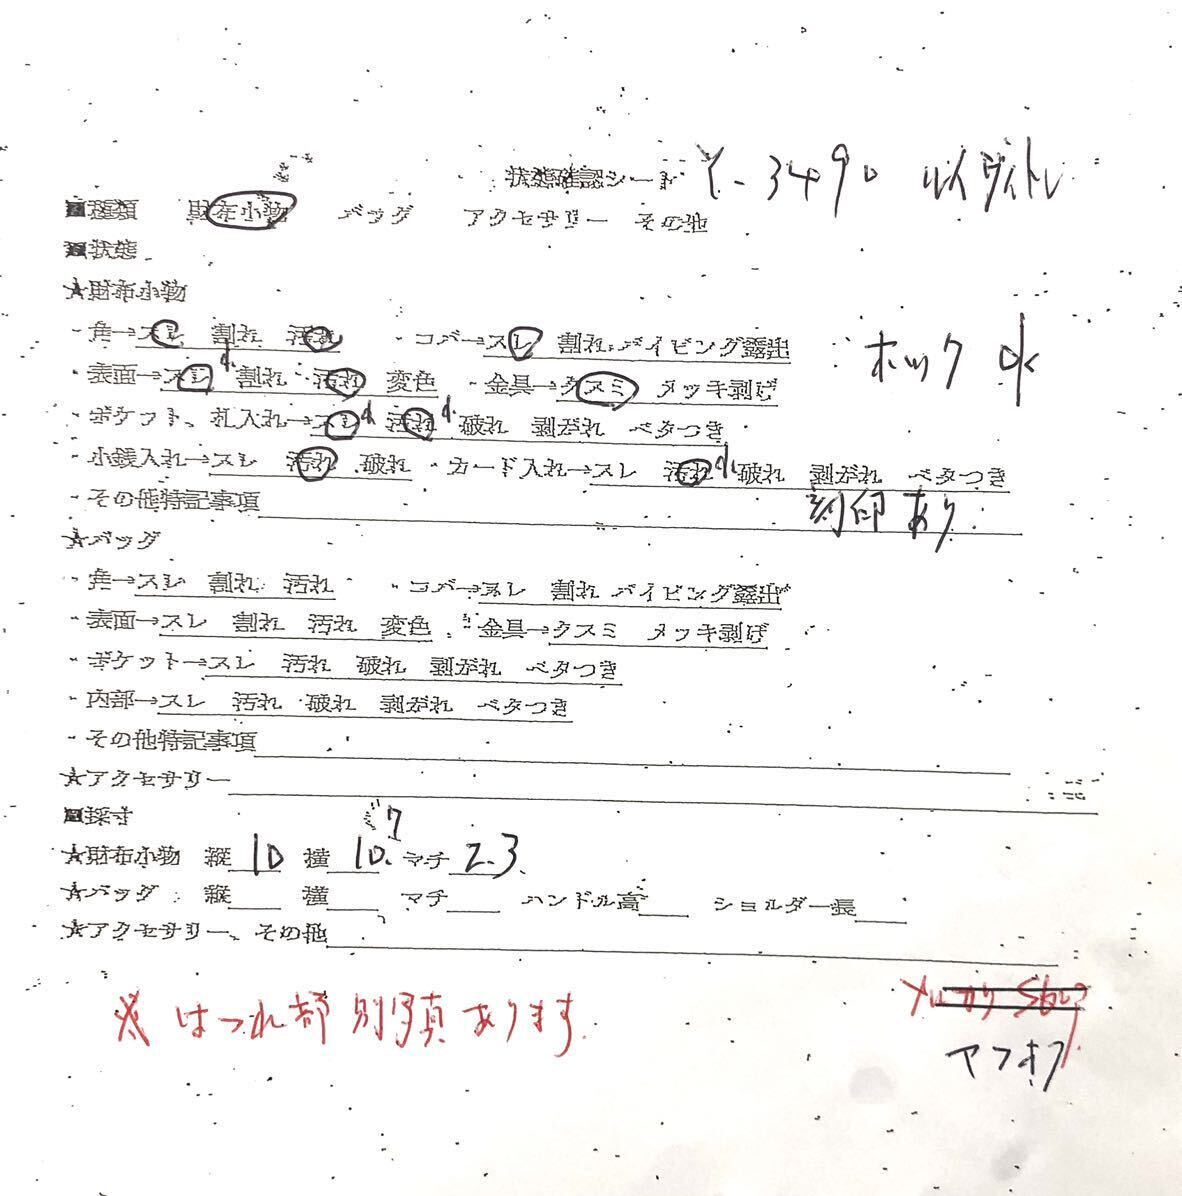 状態確認シート Y-3490 ルイヴィトン
■種類 財布小物 バッグ アクセサリー その他
■状態
★財布小物
・角→スレ 割れ 汚れ ・コバ→スレ 割れ パイピング露出
ホック OK
・表面→スレ 小 割れ 汚れ 変色 ・金具→クスミ メッキ剥げ
・ポケット、札入れ→スレ 小 汚れ 小 破れ 剥がれ ベタつき
・小銭入れ→スレ 汚れ 破れ ・カード入れ→スレ 汚れ 小 破れ 剥がれ ベタつき
・その他特記事項 刻印 あり
★バッグ
・角→スレ 割れ 汚れ ・コバ→スレ 割れ パイピング露出
・表面→スレ 割れ 汚れ 変色 ・金具→クスミ メッキ剥げ
・ポケット→スレ 汚れ 破れ 剥がれ ベタつき
・内部→スレ 汚れ 破れ 剥がれ ベタつき
・その他特記事項
★アクセサリー
■採寸
★財布小物 縦 10 横 10.7 マチ 2.3
★バッグ 縦 横 マチ ハンドル高 ショルダー長
★アクセサリー、その他
※ ほつれ部 別写真あります
ヤフオク